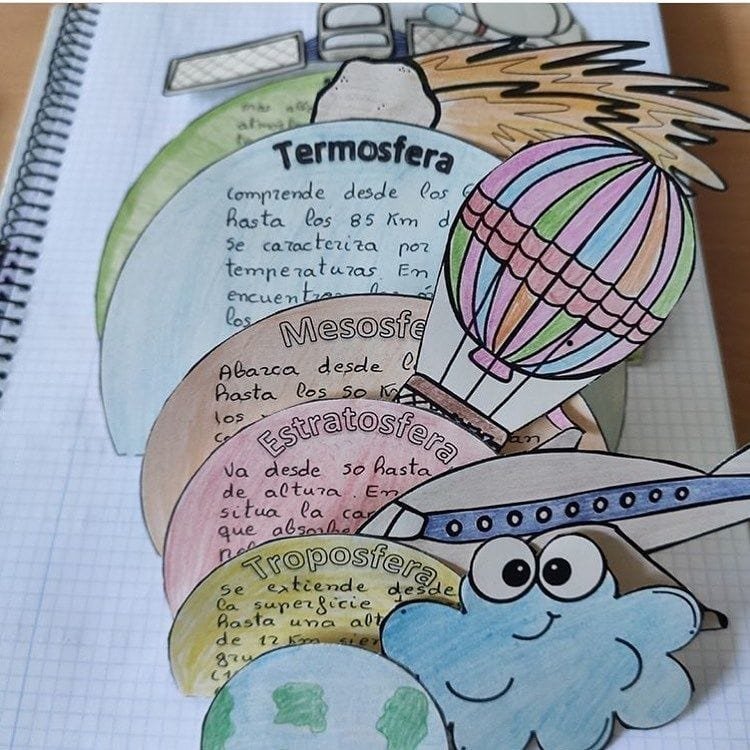 más
Termosfera
comprende desde los
hasta los 85 Km
se caracteriza por
temperaturas. En
los
Mesosfe
Abarca desde
hasta los 50 K
los
Estratosfera
Va desde 50 hasta
de altura. En
situa la ca
que absorbe
Troposfera
se extiende desde
la superficie
hasta una alt
de 12 Km sie
gru